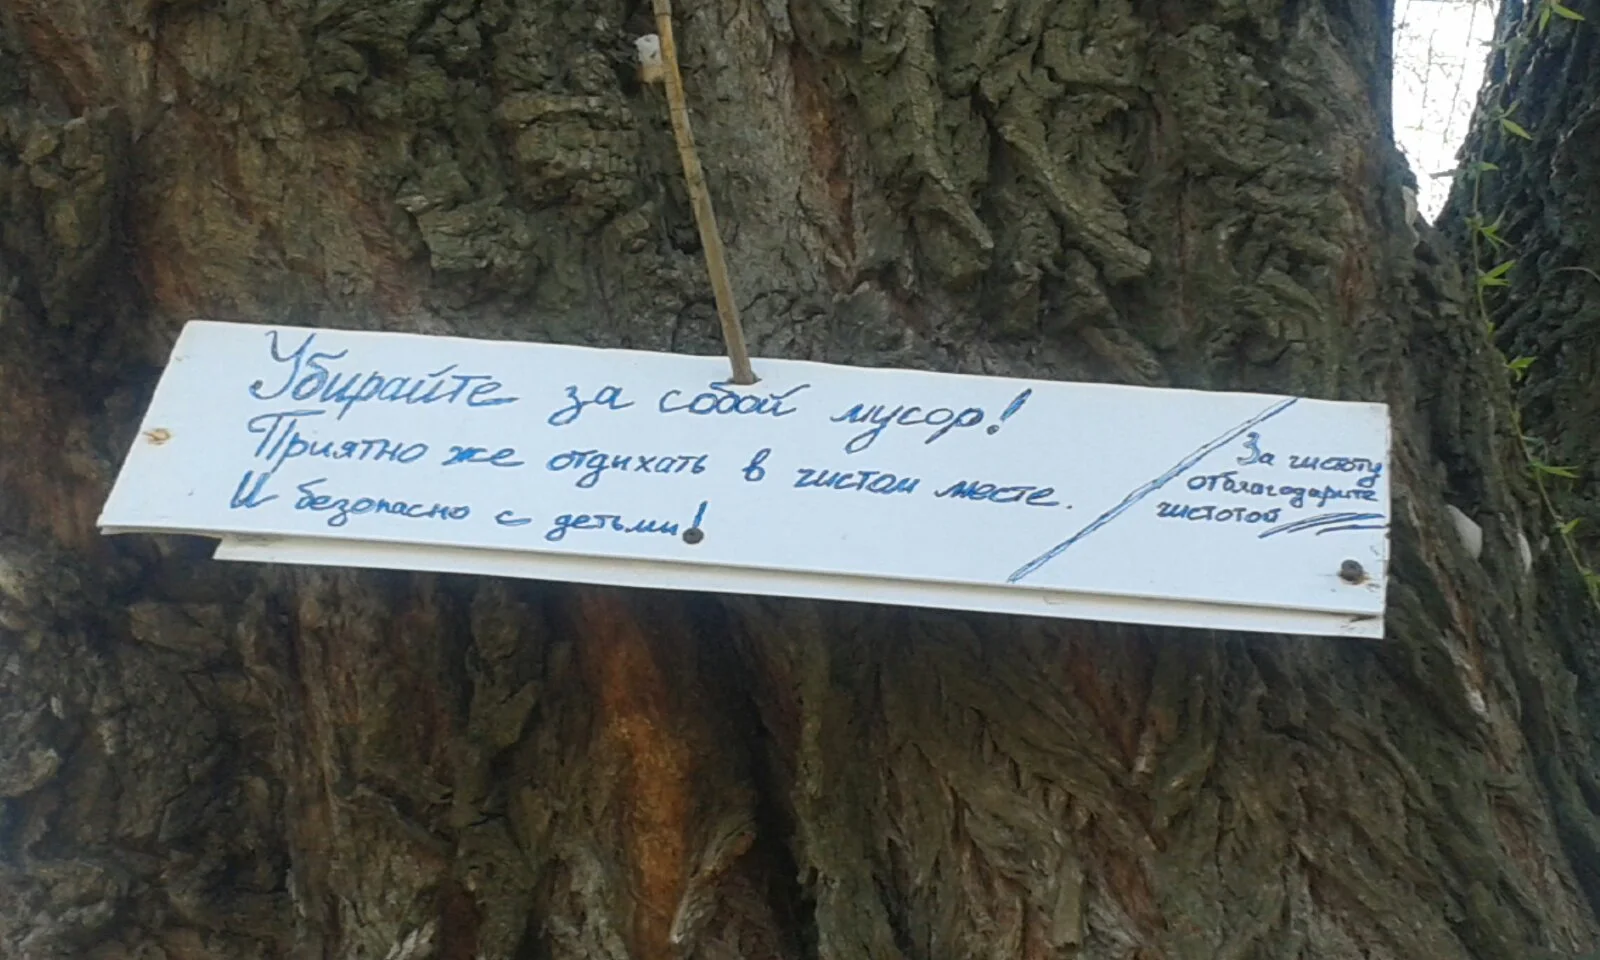 Убирайте за собой мусор!
Приятно же отдыхать в чистом месте.
И безопасно с детьми!
За чистоту
отблагодарите
чистотой